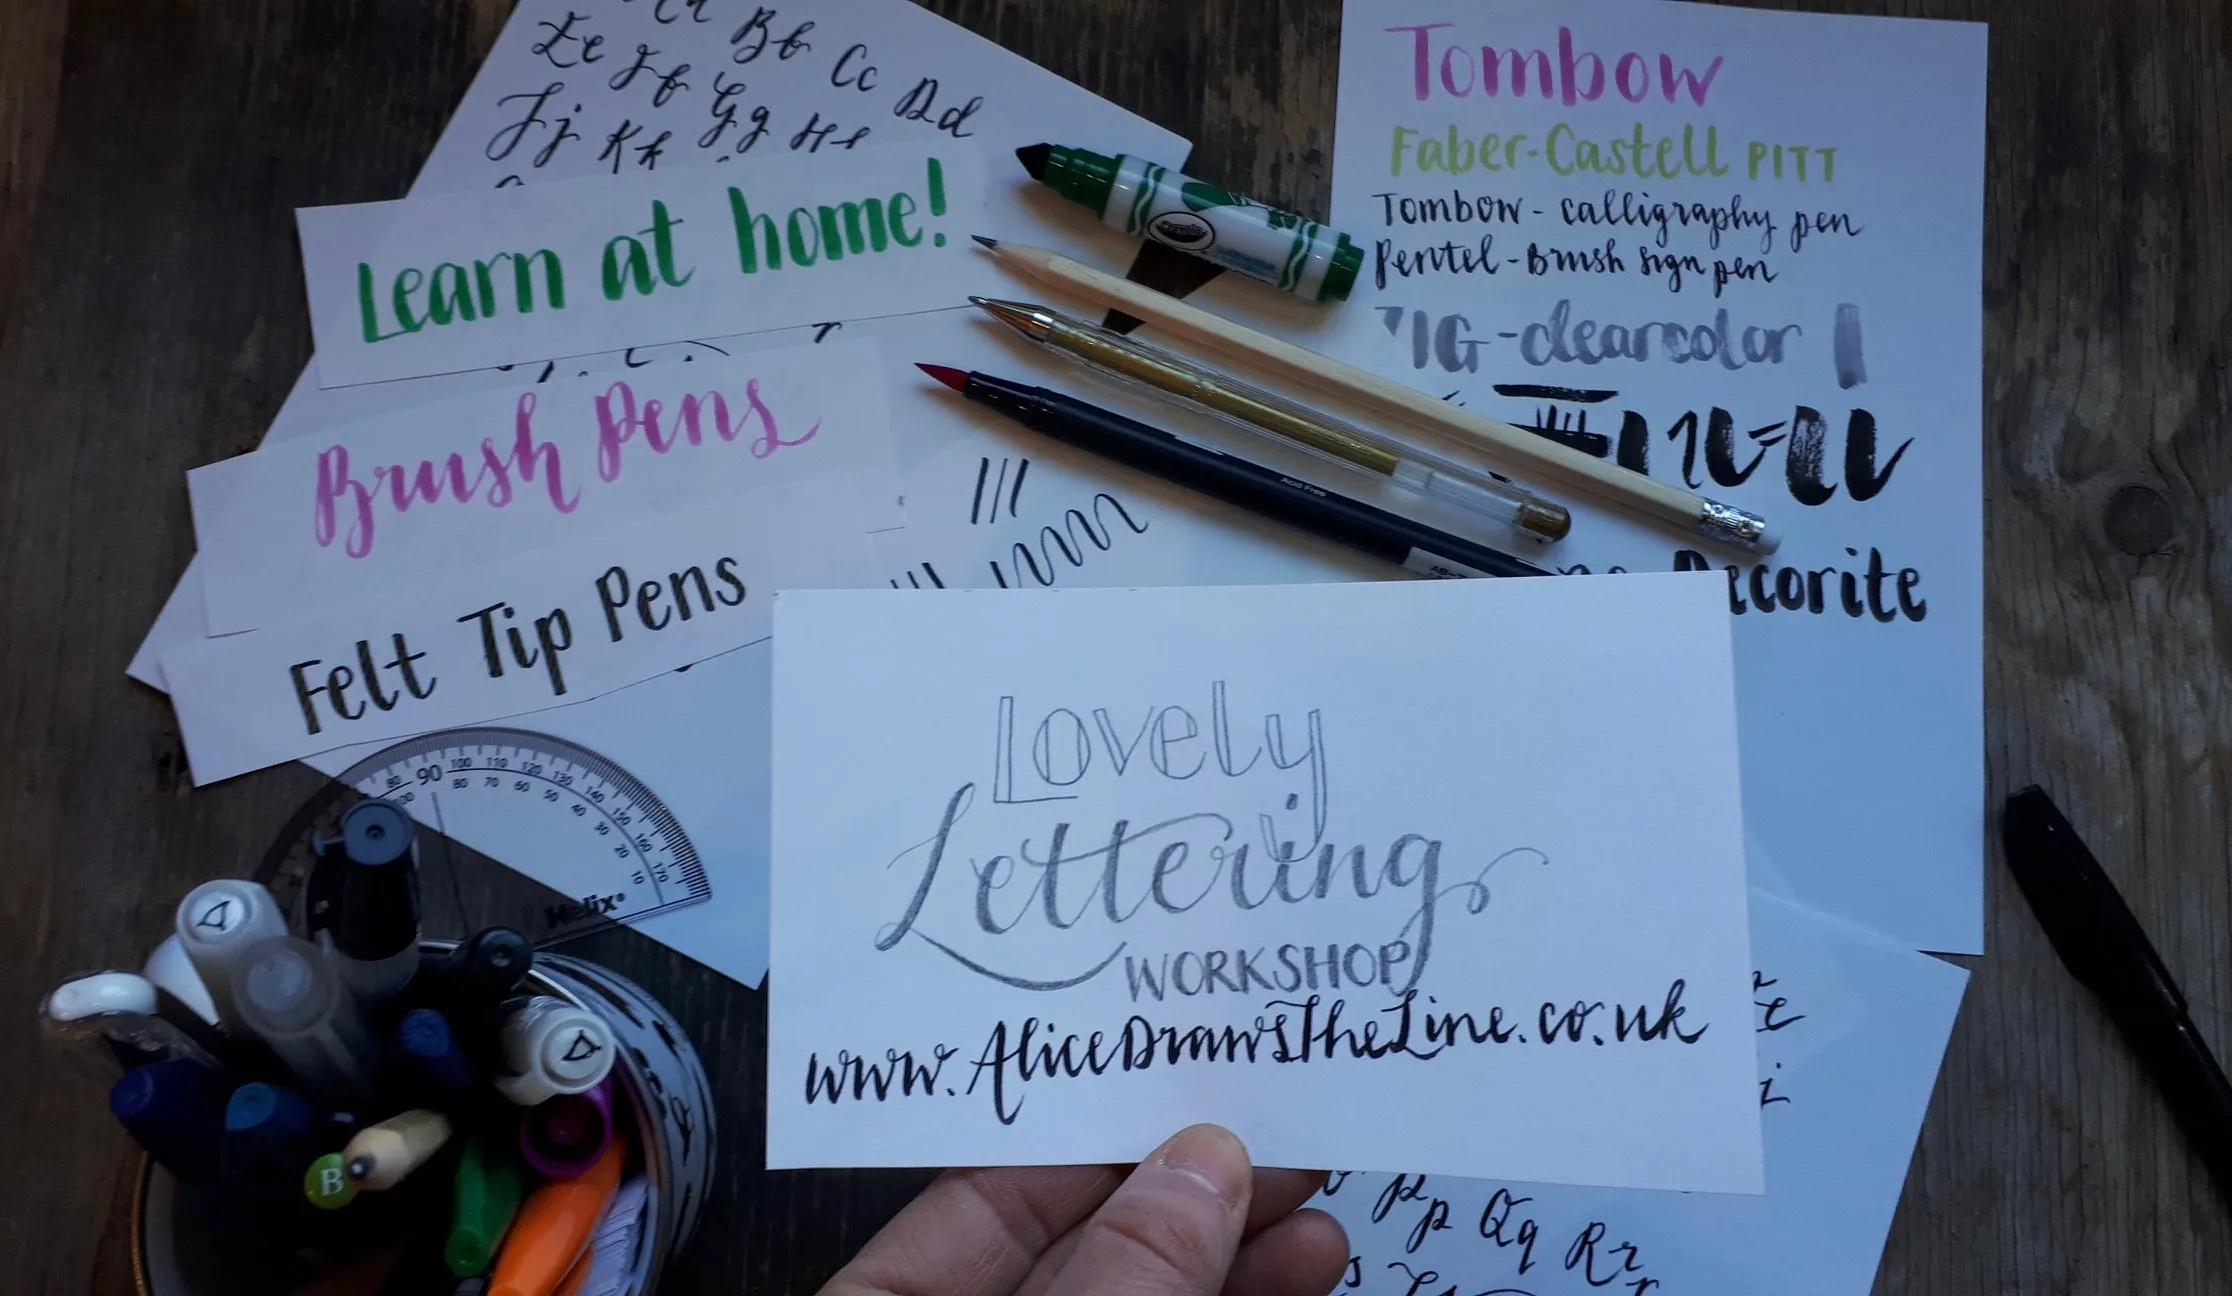 Bb Cc Dd
Ee Ff Gg
Jj Kk
Learn at home!
Brush Pens
Felt Tip Pens
Tombow
Faber-Castell PITT
Tombow - calligraphy pen
Pentel - Brush sign pen
IG - clearcolor
Decorite
Acid Free
80 90 100 110 120 130 140 150 160 170
100 80 70 60 50 40 30 20 10
Helix®
B
Lovely
Lettering
WORKSHOP
www.AliceDrawsTheLine.co.uk
Pp Qq Rr